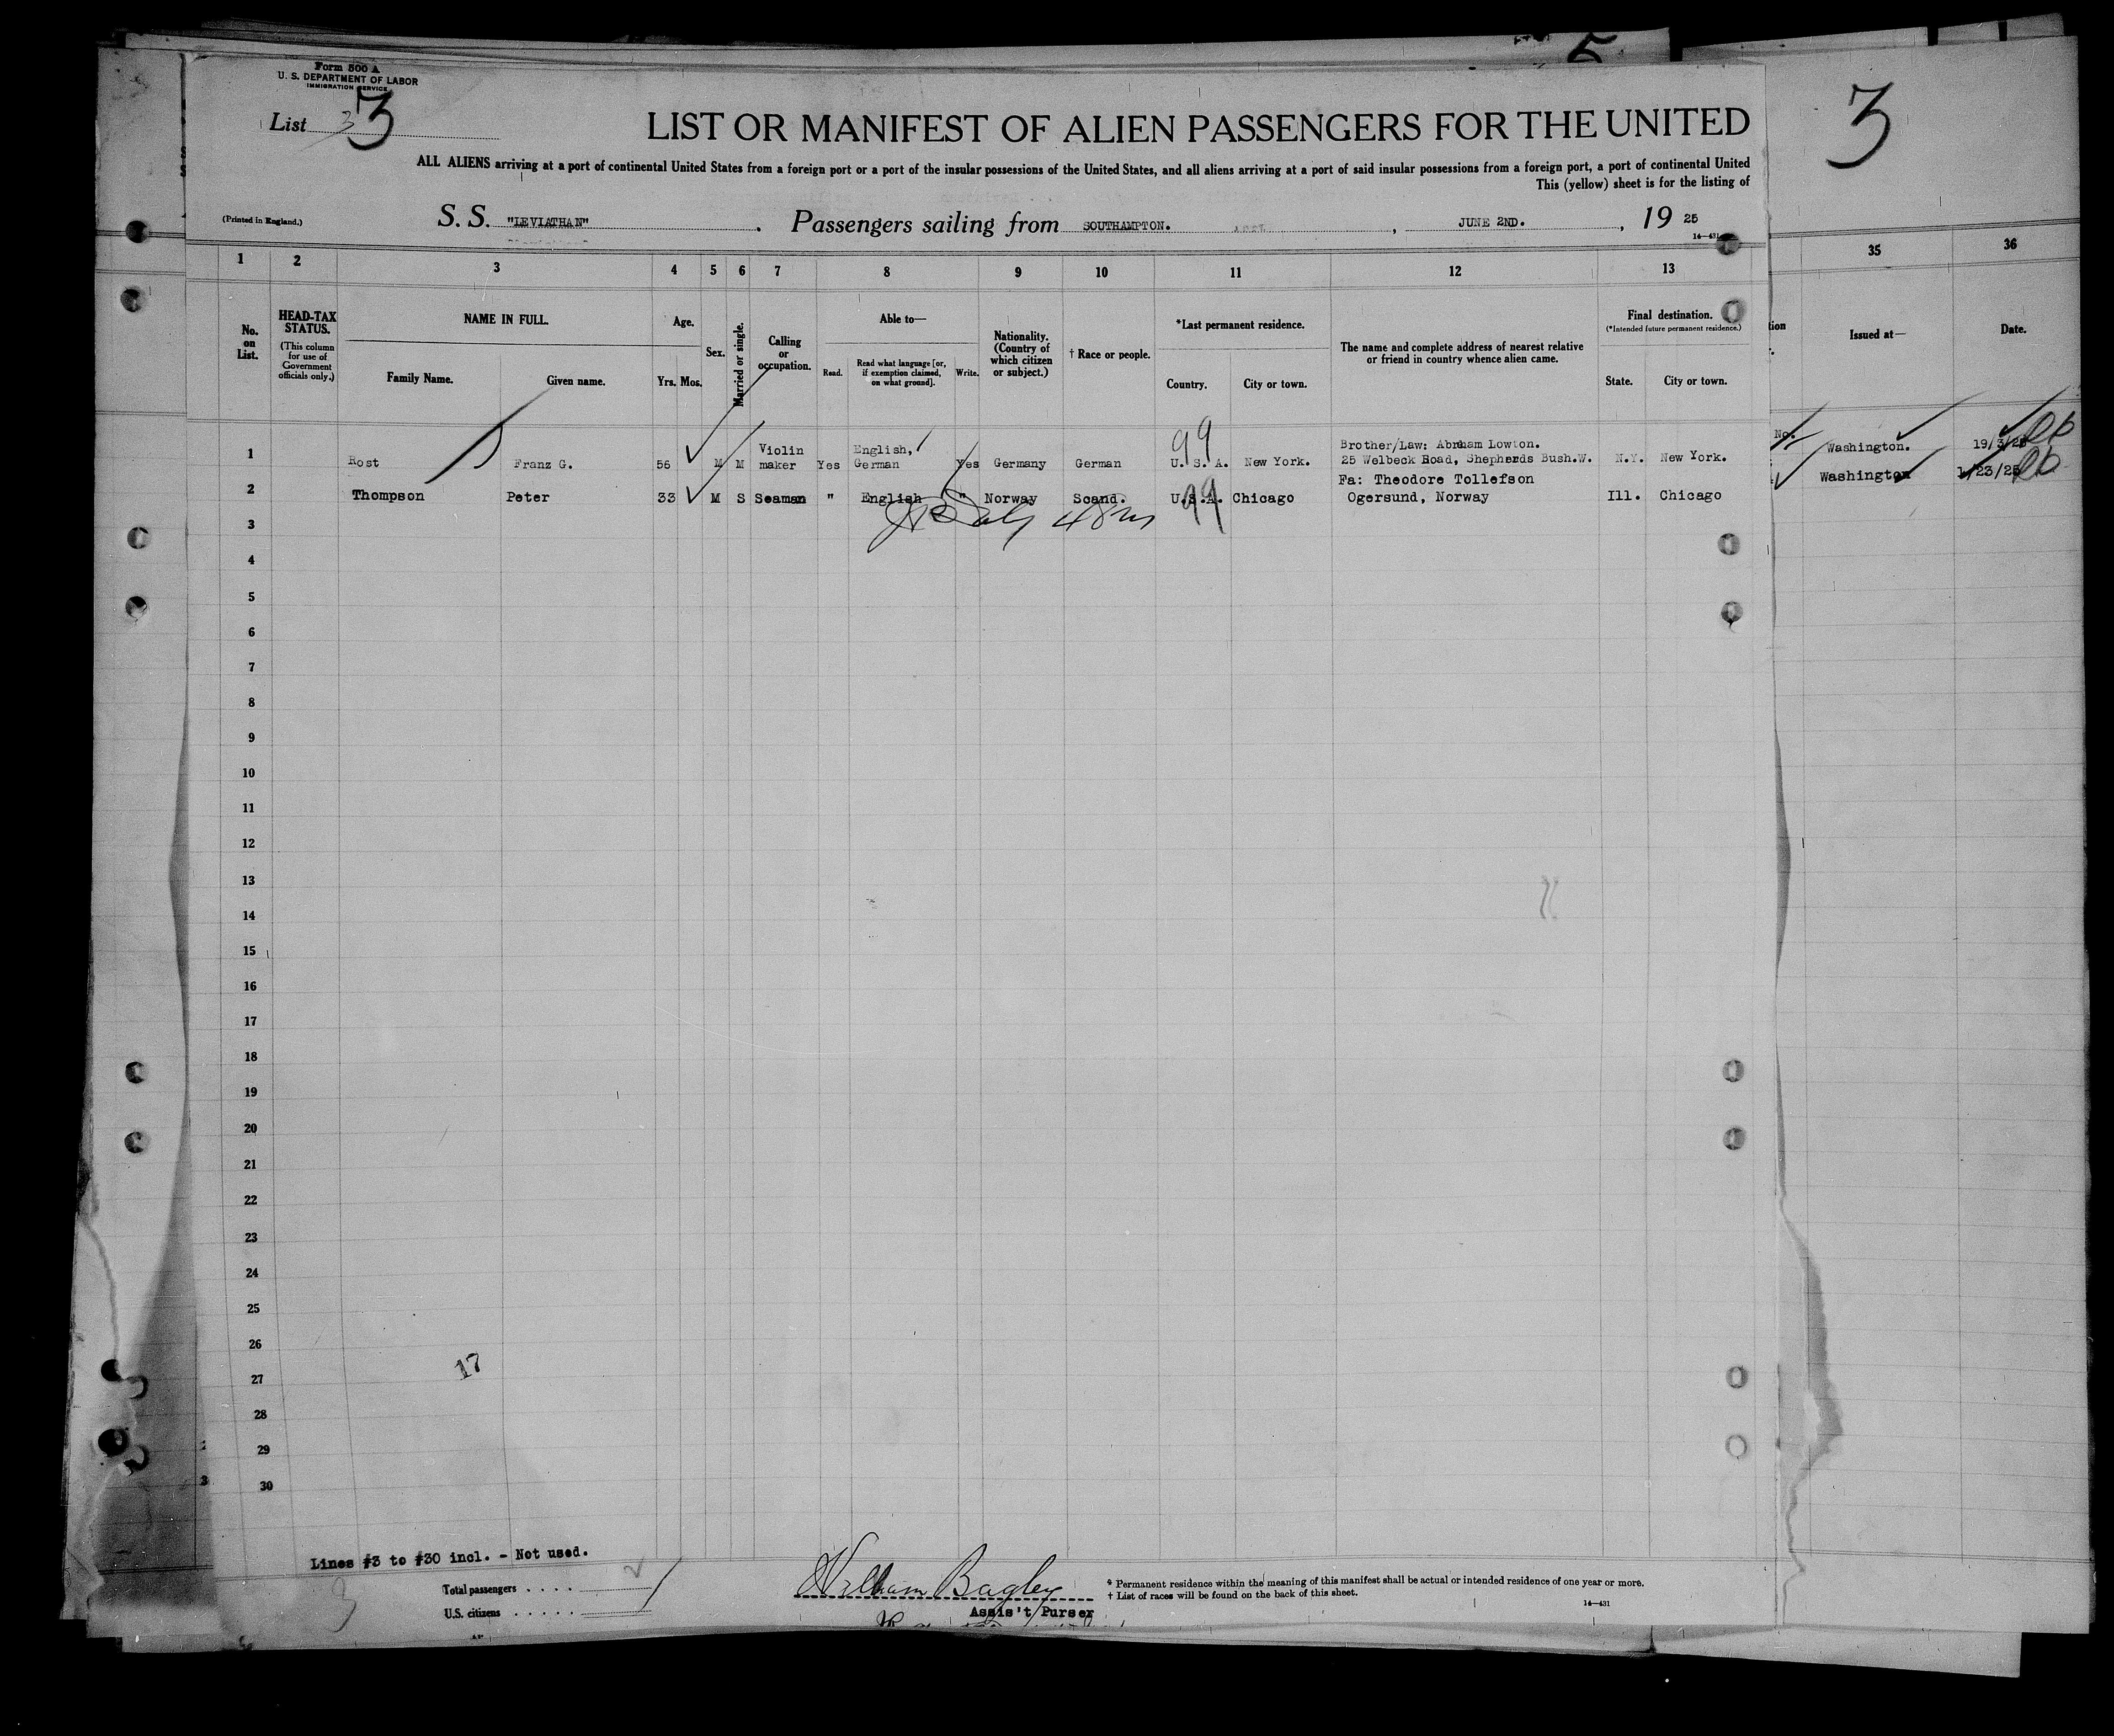 Form 500 A
U. S. DEPARTMENT OF LABOR
IMMIGRATION SERVICE
List 3 3
LIST OR MANIFEST OF ALIEN PASSENGERS FOR THE UNITED
3
ALL ALIENS arriving at a port of continental United States from a foreign port or a port of the insular possessions of the United States, and all aliens arriving at a port of said insular possessions from a foreign port, a port of continental United
This (yellow) sheet is for the listing of
(Printed in England.)
S. S. "LEVIATHAN" . Passengers sailing from SOUTHAMPTON. , JUNE 2ND. , 19 25
14—431
1 2 3 4 5 6 7 8 9 10 11 12 13 35 36
No. on List.
HEAD-TAX STATUS.
(This column for use of Government officials only.)
NAME IN FULL.
Family Name. Given name.
Age.
Yrs. Mos.
Sex.
Married or single.
Calling or occupation.
Able to—
Read.
Read what language [or, if exemption claimed, on what ground].
Write.
Nationality. (Country of which citizen or subject.)
† Race or people.
*Last permanent residence.
Country. City or town.
The name and complete address of nearest relative or friend in country whence alien came.
Final destination.
(*Intended future permanent residence.)
State. City or town.
Issued at—
Date.
1 Rost Franz G. 56 M M Violin maker Yes English, German Yes Germany German U. S. A. New York. Brother/Law: Abraham Lowton. 25 Welbeck Road, Shepherds Bush.W. N.Y. New York. No. Washington. 19/3/25
99
2 Thompson Peter 33 M S Seaman " English " Norway Scand. U.S.A. Chicago Fa: Theodore Tollefson Ogersund, Norway Ill. Chicago Washington 1/23/25
99
3
4
5
6
7
8
9
10
11
12
13
14
15
16
17
18
19
20
21
22
23
24
25
26
17
27
28
29
30
Lines #3 to #30 incl. - Not used.
Total passengers . . . .
U.S. citizens . . . . .
3
William Bagley
Assis't Purser
* Permanent residence within the meaning of this manifest shall be actual or intended residence of one year or more.
† List of races will be found on the back of this sheet.
14—431